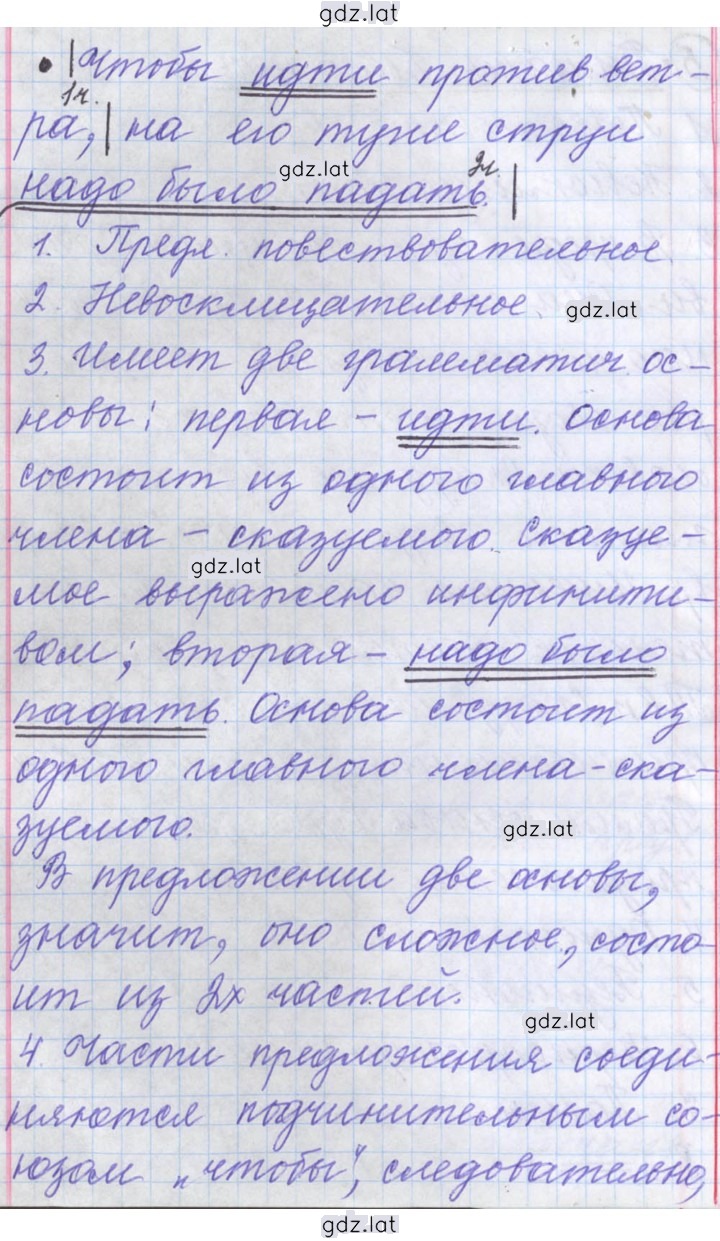 gdz.lat
• | Чтобы идти против вет-
1ч.
ра, | на его тугие струи
gdz.lat
2ч
надо было падать. |
1. Предл. повествовательное.
2. Невосклицательное.
gdz.lat
3. Имеет две грамматич. ос-
новы: первая – идти. Основа
состоит из одного главного
члена – сказуемого. Сказуе-
gdz.lat
мое выражено инфинити-
вом; вторая – надо было
падать. Основа состоит из
одного главного члена - ска-
зуемого.
gdz.lat
В предложении две основы,
значит, оно сложное, состо
ит из 2х частей.
gdz.lat
4. Части предложения соеди-
няются подчинительным со-
юзом „чтобы", следовательно,
gdz.lat